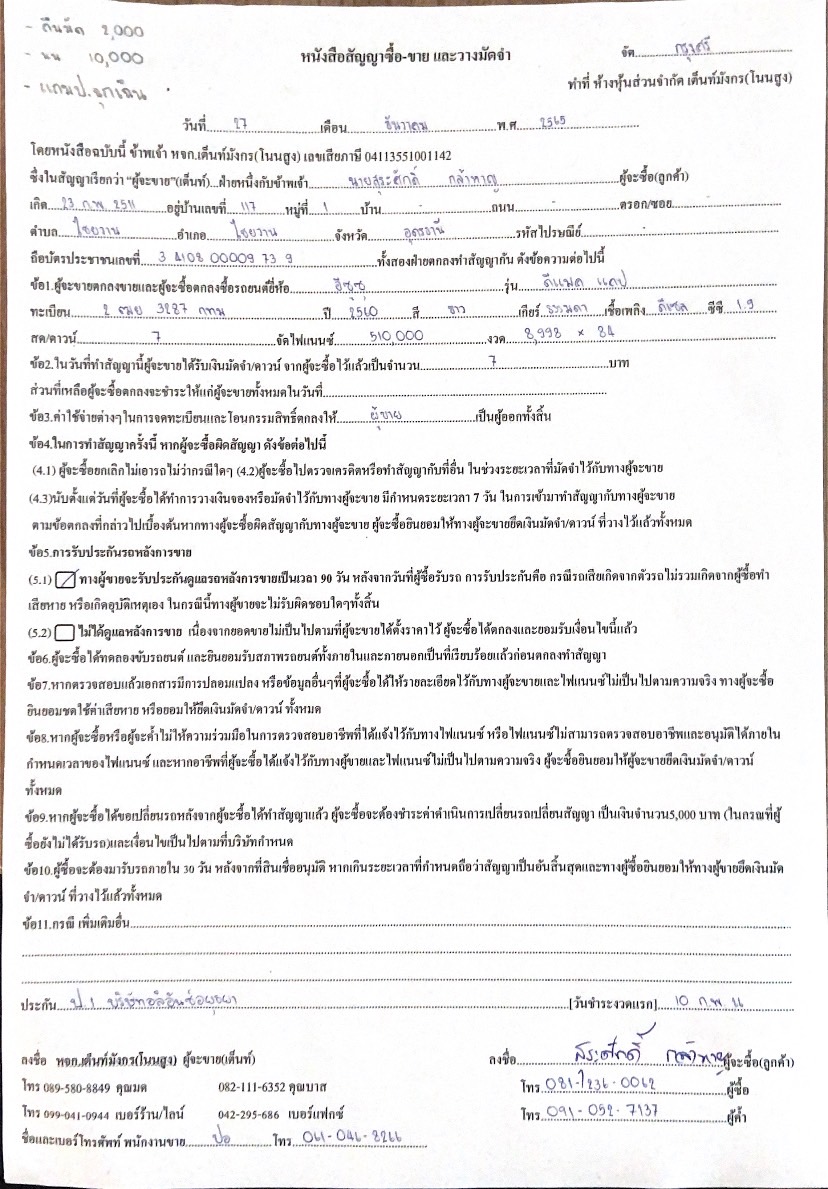 - คืนมัด 2,000
- นน 10,000
- แถมป.ฉุกเฉิน
หนังสือสัญญาซื้อ-ขาย และวางมัดจำ
จัด กรุงศรี
ทำที่ ห้างหุ้นส่วนจำกัด เต็นท์มังกร(โนนสูง)
วันที่ 27 เดือน ธันวาคม พ.ศ 2565
โดยหนังสือฉบับนี้ ข้าพเจ้า หจก.เต็นท์มังกร(โนนสูง) เลขเสียภาษี 04113551001142
ซึ่งในสัญญาเรียกว่า "ผู้จะขาย"(เต็นท์)...ฝ่ายหนึ่งกับข้าพเจ้า นายสุระศักดิ์ กล้าหาญ ผู้จะซื้อ(ลูกค้า)
เกิด 23 ก.พ. 2511 อยู่บ้านเลขที่ 117 หมู่ที่ 1 บ้าน - ถนน - ตรอก/ซอย -
ตำบล ไชยวาน อำเภอ ไชยวาน จังหวัด อุดรธานี รหัสไปรษณีย์
ถือบัตรประชาชนเลขที่ 3 4108 00009 73 9 ทั้งสองฝ่ายตกลงทำสัญญากัน ดังข้อความต่อไปนี้
ข้อ1.ผู้จะขายตกลงขายและผู้จะซื้อตกลงซื้อรถยนต์ยี่ห้อ อีซูซุ รุ่น ดีแมค แคป
ทะเบียน 2 ฒย 3287 กทม ปี 2560 สี ขาว เกียร์ ธรรมดา เชื้อเพลิง ดีเซล ซีซี 1.9
สด/ดาวน์ 7 จัดไฟแนนซ์ 510,000 งวด 8,998 × 84
ข้อ2.ในวันที่ทำสัญญานี้ผู้จะขายได้รับเงินมัดจำ/ดาวน์ จากผู้จะซื้อไว้แล้วเป็นจำนวน 7 บาท
ส่วนที่เหลือผู้จะซื้อตกลงจะชำระให้แก่ผู้จะขายทั้งหมดในวันที่
ข้อ3.ค่าใช้จ่ายต่างๆในการจดทะเบียนและโอนกรรมสิทธิ์ตกลงให้ ผู้ขาย เป็นผู้ออกทั้งสิ้น
ข้อ4.ในการทำสัญญาครั้งนี้ หากผู้จะซื้อผิดสัญญา ดังข้อต่อไปนี้
(4.1) ผู้จะซื้อยกเลิกไม่เอารถไม่ว่ากรณีใดๆ (4.2)ผู้จะซื้อไปตรวจเครดิตหรือทำสัญญากับที่อื่น ในช่วงระยะเวลาที่มัดจำไว้กับทางผู้จะขาย
(4.3)นับตั้งแต่วันที่ผู้จะซื้อได้ทำการวางเงินจองหรือมัดจำไว้กับทางผู้จะขาย มีกำหนดระยะเวลา 7 วัน ในการเข้ามาทำสัญญากับทางผู้จะขาย
ตามข้อตกลงที่กล่าวไปเบื้องต้นหากทางผู้จะซื้อผิดสัญญากับทางผู้จะขาย ผู้จะซื้อยินยอมให้ทางผู้จะขายยึดเงินมัดจำ/ดาวน์ ที่วางไว้แล้วทั้งหมด
ข้อ5.การรับประกันรถหลังการขาย
(5.1) ทางผู้ขายจะรับประกันดูแลรถหลังการขายเป็นเวลา 90 วัน หลังจากวันที่ผู้ซื้อรับรถ การรับประกันคือ กรณีรถเสียเกิดจากตัวรถไม่รวมเกิดจากผู้ซื้อทำ
เสียหาย หรือเกิดอุบัติเหตุเอง ในกรณีนี้ทางผู้ขายจะไม่รับผิดชอบใดๆทั้งสิ้น
(5.2) ไม่ได้ดูแลหลังการขาย เนื่องจากยอดขายไม่เป็นไปตามที่ผู้จะขายได้ตั้งราคาไว้ ผู้จะซื้อได้ตกลงและยอมรับเงื่อนไขนี้แล้ว
ข้อ6.ผู้จะซื้อได้ทดลองขับรถยนต์ และยินยอมรับสภาพรถยนต์ทั้งภายในและภายนอกเป็นที่เรียบร้อยแล้วก่อนตกลงทำสัญญา
ข้อ7.หากตรวจสอบแล้วเอกสารมีการปลอมแปลง หรือข้อมูลอื่นๆที่ผู้จะซื้อได้ให้รายละเอียดไว้กับทางผู้จะขายและไฟแนนซ์ไม่เป็นไปตามความจริง ทางผู้จะซื้อ
ยินยอมชดใช้ค่าเสียหาย หรือยอมให้ยึดเงินมัดจำ/ดาวน์ ทั้งหมด
ข้อ8.หากผู้จะซื้อหรือผู้จะค้ำไม่ให้ความร่วมมือในการตรวจสอบอาชีพที่ได้แจ้งไว้กับทางไฟแนนซ์ หรือไฟแนนซ์ไม่สามารถตรวจสอบอาชีพและอนุมัติได้ภายใน
กำหนดเวลาของไฟแนนซ์ และหากอาชีพที่ผู้จะซื้อได้แจ้งไว้กับทางผู้ขายและไฟแนนซ์ไม่เป็นไปตามความจริง ผู้จะซื้อยินยอมให้ผู้จะขายยึดเงินมัดจำ/ดาวน์
ทั้งหมด
ข้อ9.หากผู้จะซื้อได้ขอเปลี่ยนรถหลังจากผู้จะซื้อได้ทำสัญญาแล้ว ผู้จะซื้อจะต้องชำระค่าดำเนินการเปลี่ยนรถเปลี่ยนสัญญา เป็นเงินจำนวน5,000 บาท (ในกรณีที่ผู้
ซื้อยังไม่ได้รับรถ)และเงื่อนไขเป็นไปตามที่บริษัทกำหนด
ข้อ10.ผู้ซื้อจะต้องมารับรถภายใน 30 วัน หลังจากที่สินเชื่ออนุมัติ หากเกินระยะเวลาที่กำหนดถือว่าสัญญาเป็นอันสิ้นสุดและทางผู้ซื้อยินยอมให้ทางผู้ขายยึดเงินมัด
จำ/ดาวน์ ที่วางไว้แล้วทั้งหมด
ข้อ11.กรณี เพิ่มเติมอื่น
ประกัน ป.1 บริษัทอลิอันซ์อยุธยา [วันชำระงวดแรก] 10 ก.พ. 66
ลงชื่อ หจก.เต็นท์มังกร(โนนสูง) ผู้จะขาย(เต็นท์) ลงชื่อ สุระศักดิ์ กล้าหาญ ผู้จะซื้อ(ลูกค้า)
โทร 089-580-8849 คุณมด 082-111-6352 คุณบาส โทร 081-7236-0062 ผู้ซื้อ
โทร 099-041-0944 เบอร์ร้าน/ไลน์ 042-295-686 เบอร์แฟกซ์ โทร 091-052-7137 ผู้ค้ำ
ชื่อและเบอร์โทรศัพท์ พนักงานขาย ปอ โทร 061-046-8266